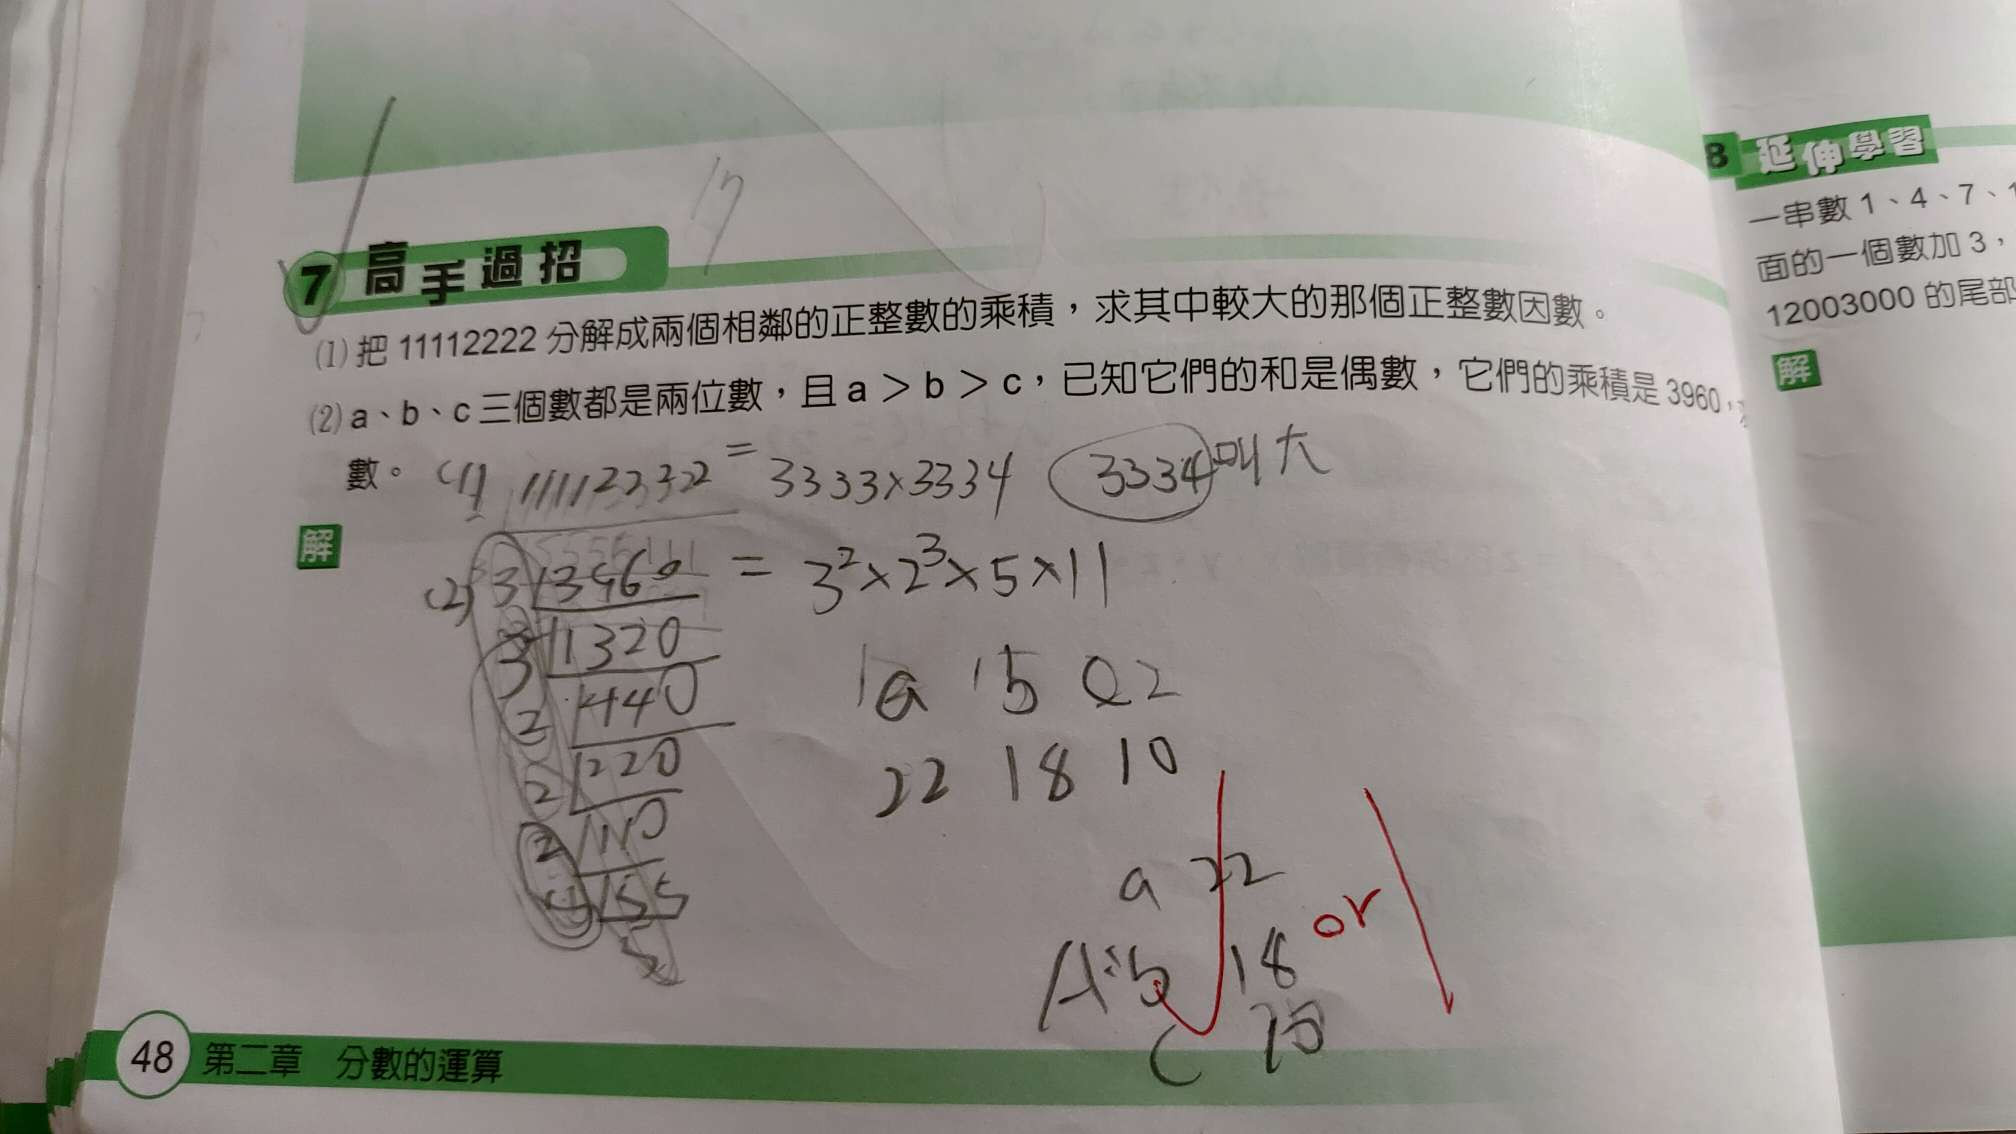 7 高手過招
(1) 把 11112222 分解成兩個相鄰的正整數的乘積，求其中較大的那個正整數因數。
(2) a、b、c 三個數都是兩位數，且 a＞b＞c，已知它們的和是偶數，它們的乘積是 3960，
數。
(1) 11112222 = 3333×3334 3334 叫大
解
(2) 3 3960 = 3²×2³×5×11
3 1320
2 440
2 220
2 110
55
5
a b c
22 18 10
a 22
A: b 18 or
c 10
48 第二章 分數的運算
8 延伸學習
一串數 1、4、7、
面的一個數加 3，
12003000 的尾部
解